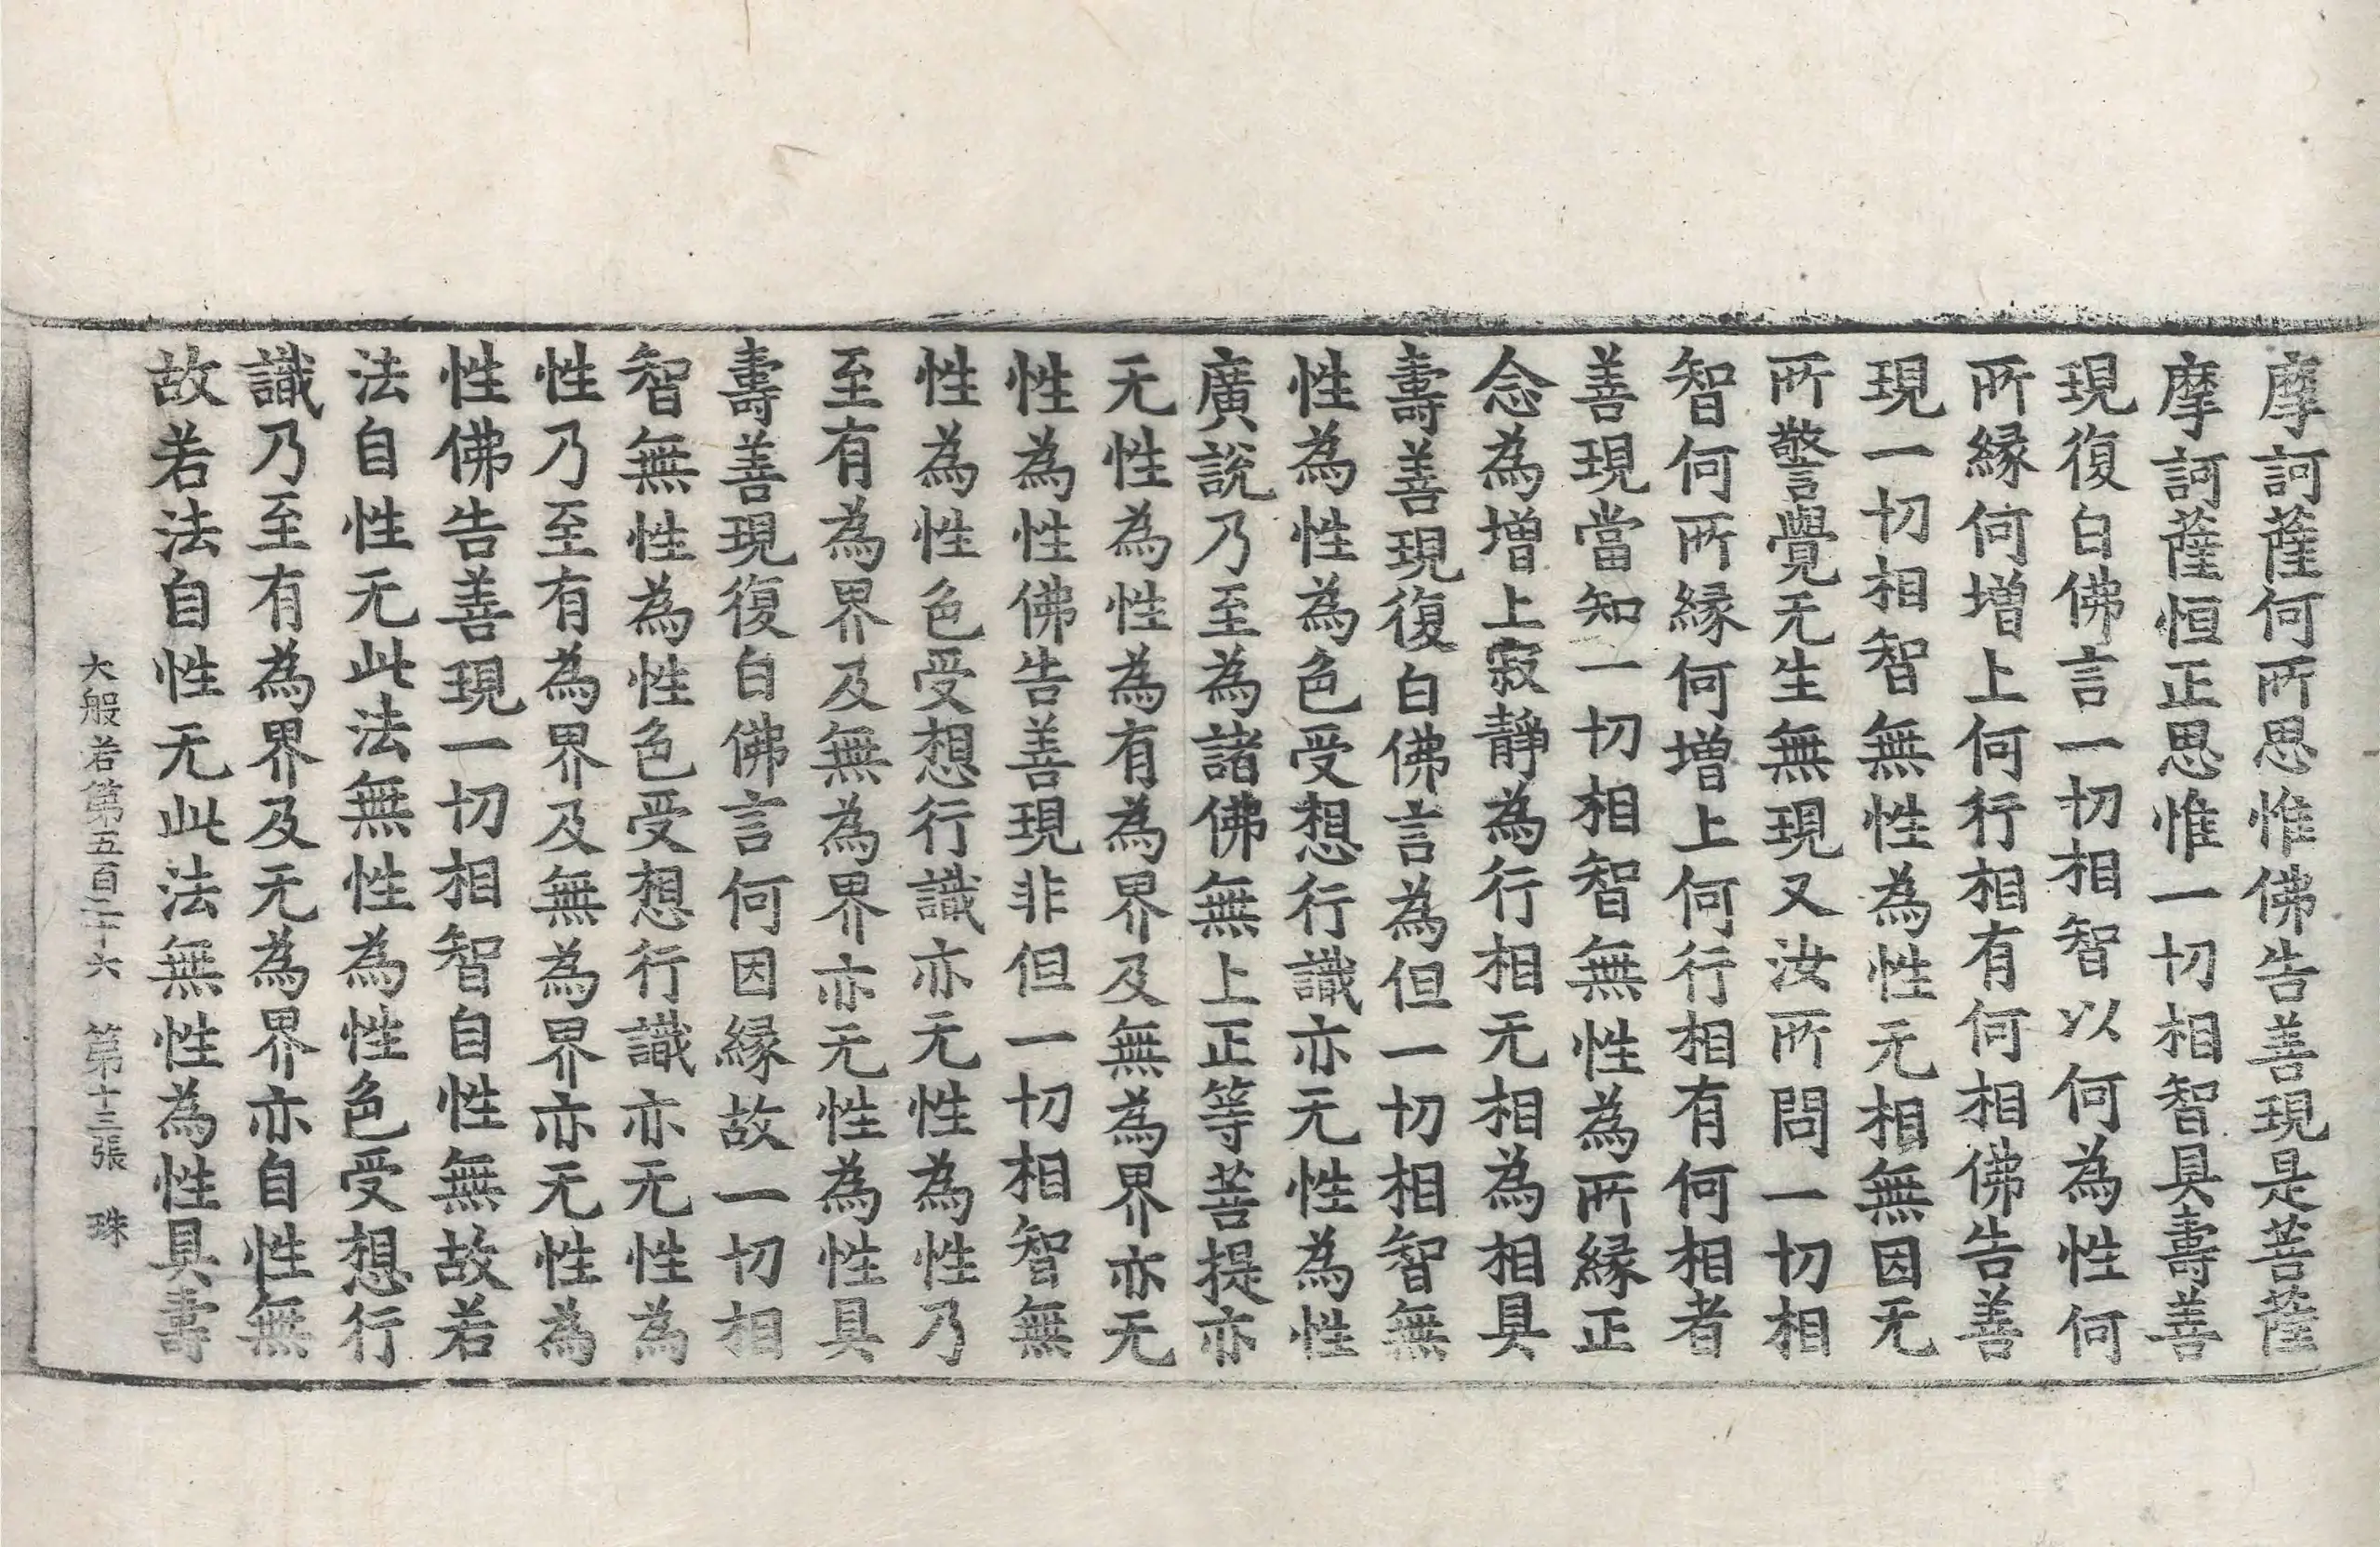 摩訶薩何所思惟佛告善現是菩薩
摩訶薩恒正思惟一切相智具壽善
現復白佛言一切相智以何為性何
所緣何增上何行相有何相佛告善
現一切相智無性為性无相無因无
所警覺无生無現又汝所問一切相
智何所緣何增上何行相有何相者
善現當知一切相智無性為所緣正
念為增上寂靜為行相无相為相具
壽善現復白佛言為但一切相智無
性為性為色受想行識亦无性為性
廣說乃至為諸佛無上正等菩提亦
无性為性為有為界及無為界亦无
性為性佛告善現非但一切相智無
性為性色受想行識亦无性為性乃
至有為界及無為界亦无性為性具
壽善現復白佛言何因緣故一切相
智無性為性色受想行識亦无性為
性乃至有為界及無為界亦无性為
性佛告善現一切相智自性無故若
法自性无此法無性為性色受想行
識乃至有為界及无為界亦自性無
故若法自性无此法無性為性具壽
大般若第五百二十六 第十三張 珠